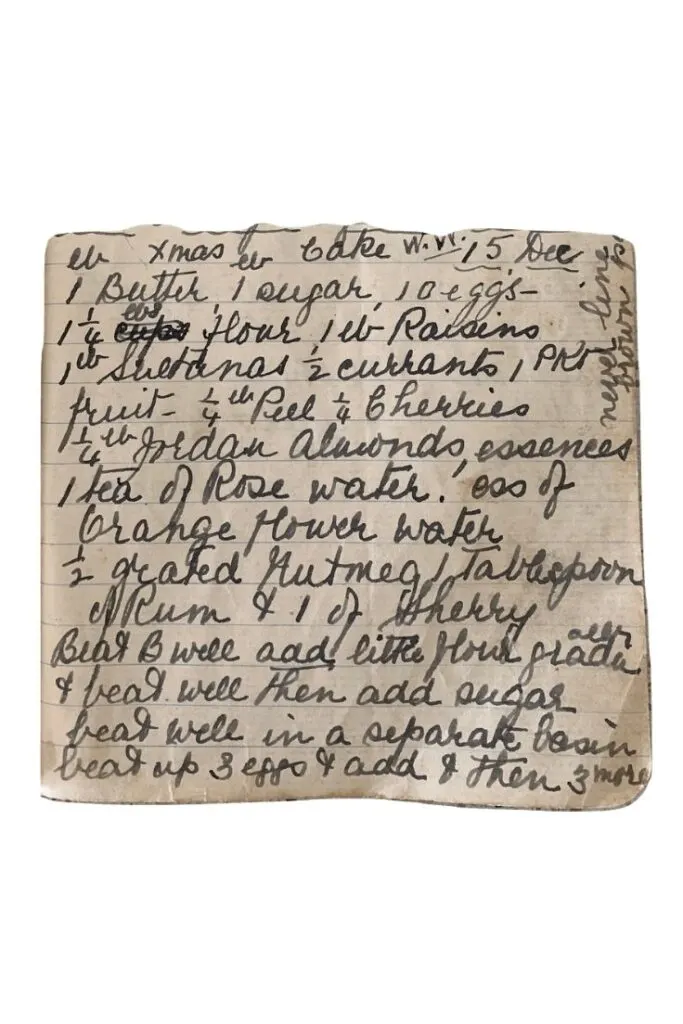 lb Xmas lb Cake W.W. 15 Dec
1 Butter, 1 sugar, 10 eggs-
1 1/4 lbs flour 1 lb Raisins
1 lb Sultanas 1/2 currants, 1 PKT
fruit- 1/4 lb Peel 1/4 Cherries
1/4 lb Jordan Almonds, essences
1 tea of Rose water. ess of
Orange flower water
1/2 grated Nutmeg 1 Tablespoon
of Rum & 1 of Sherry
Beat B well add little flour gradually
& beat well then add sugar
beat well in a separate basin
beat up 3 eggs & add & then 3 more
never line
brown